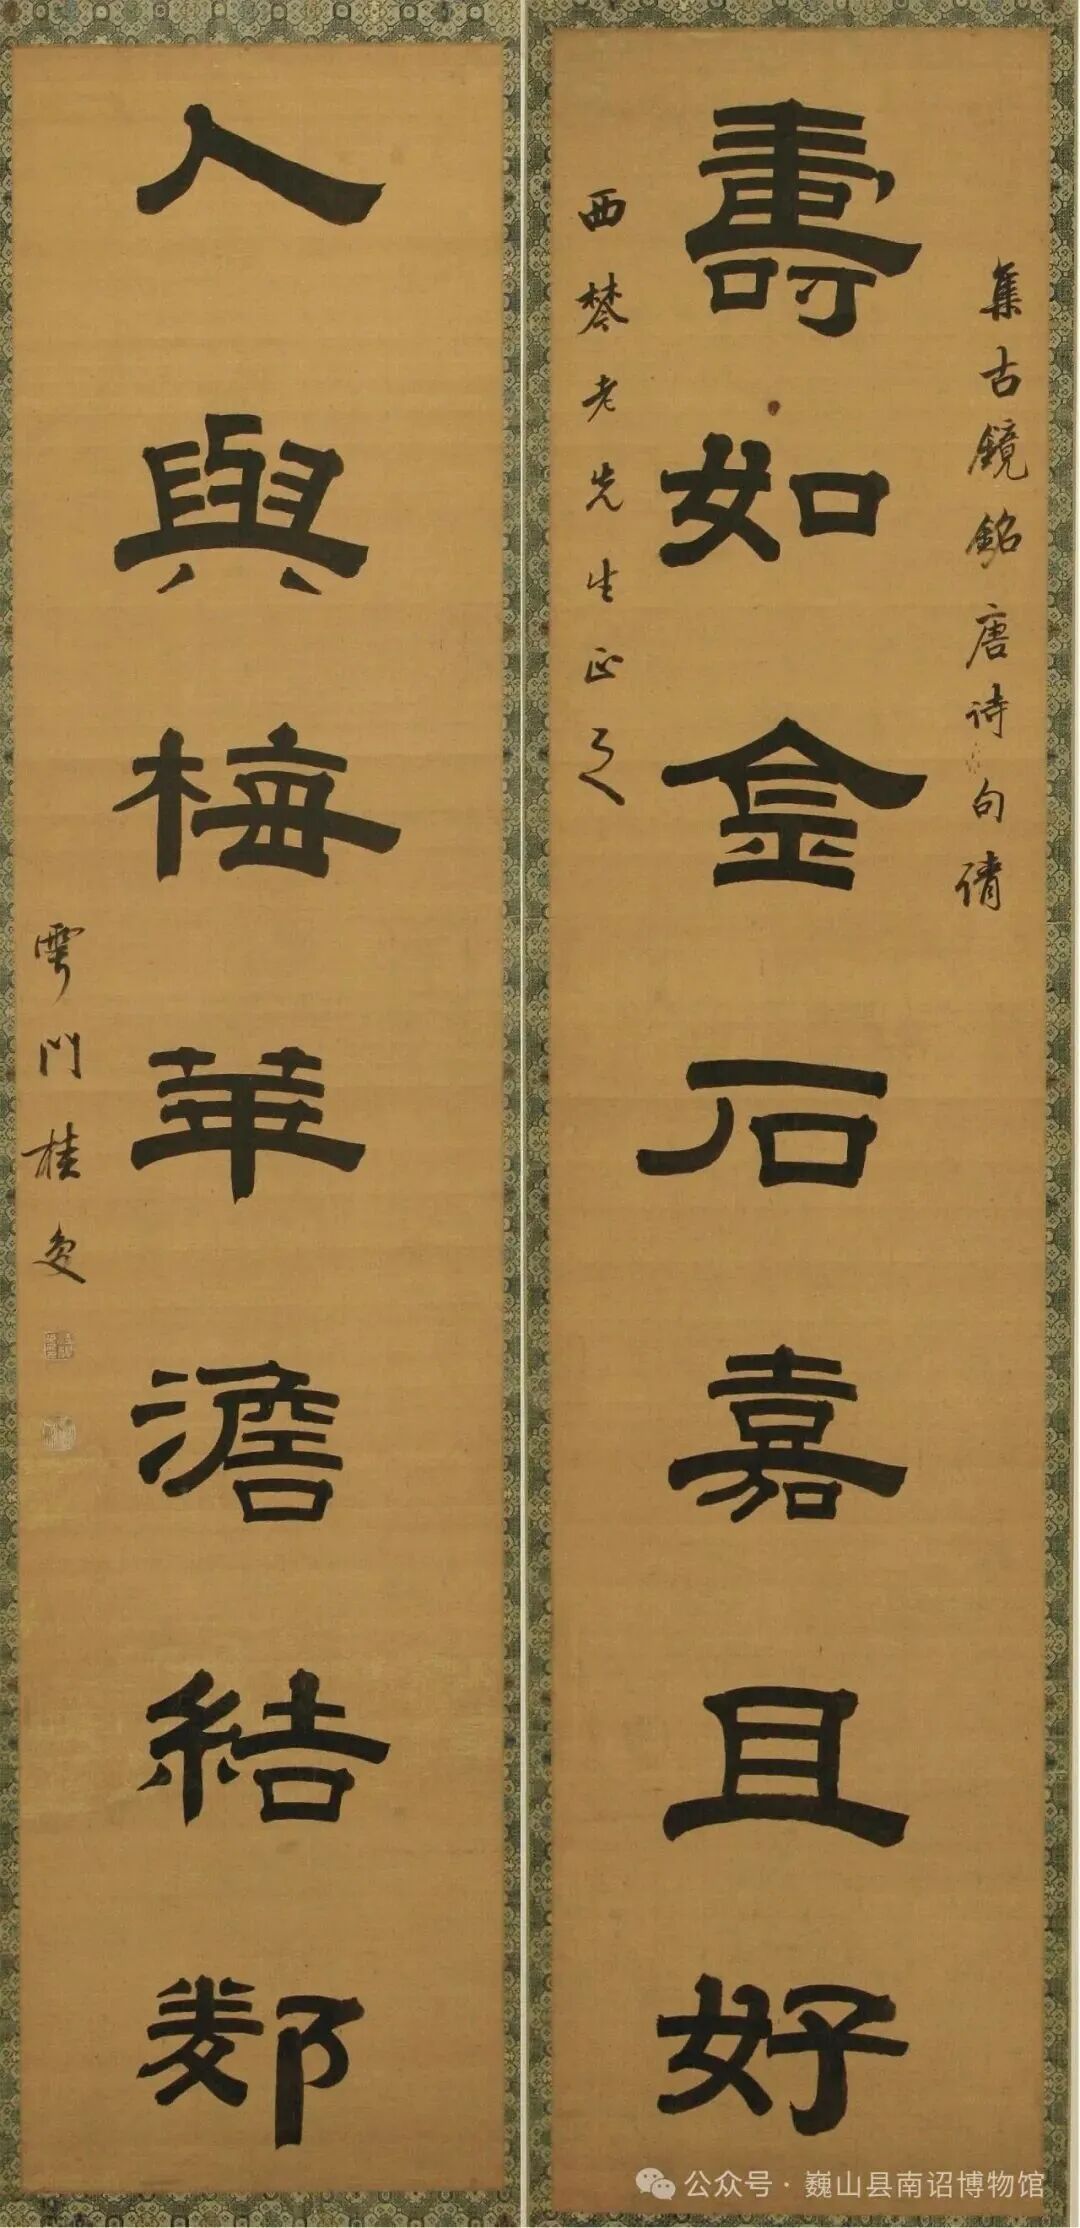 集古鏡銘唐詩句倩
壽如金石嘉且好
西棽老先生正之
人與梅華澹結鄰
雩門桂馥
公众号·巍山县南诏博物馆